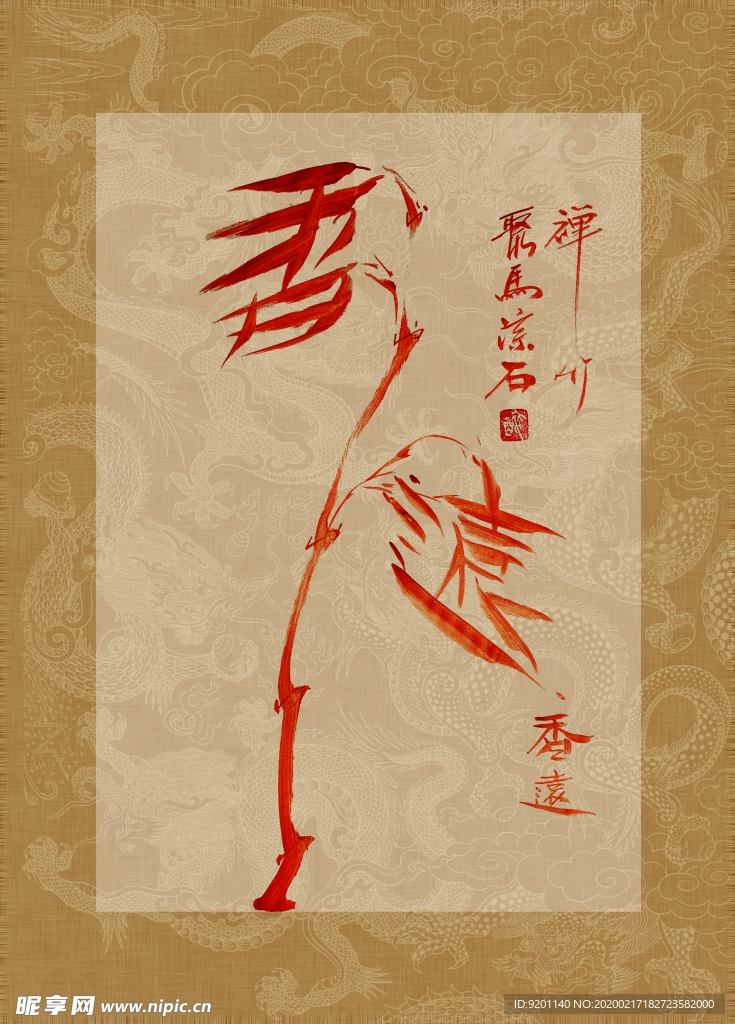 禅竹
聚馬凉石
香遠
昵享网 www.nipic.cn
ID:9201140 NO:20200217182723582000